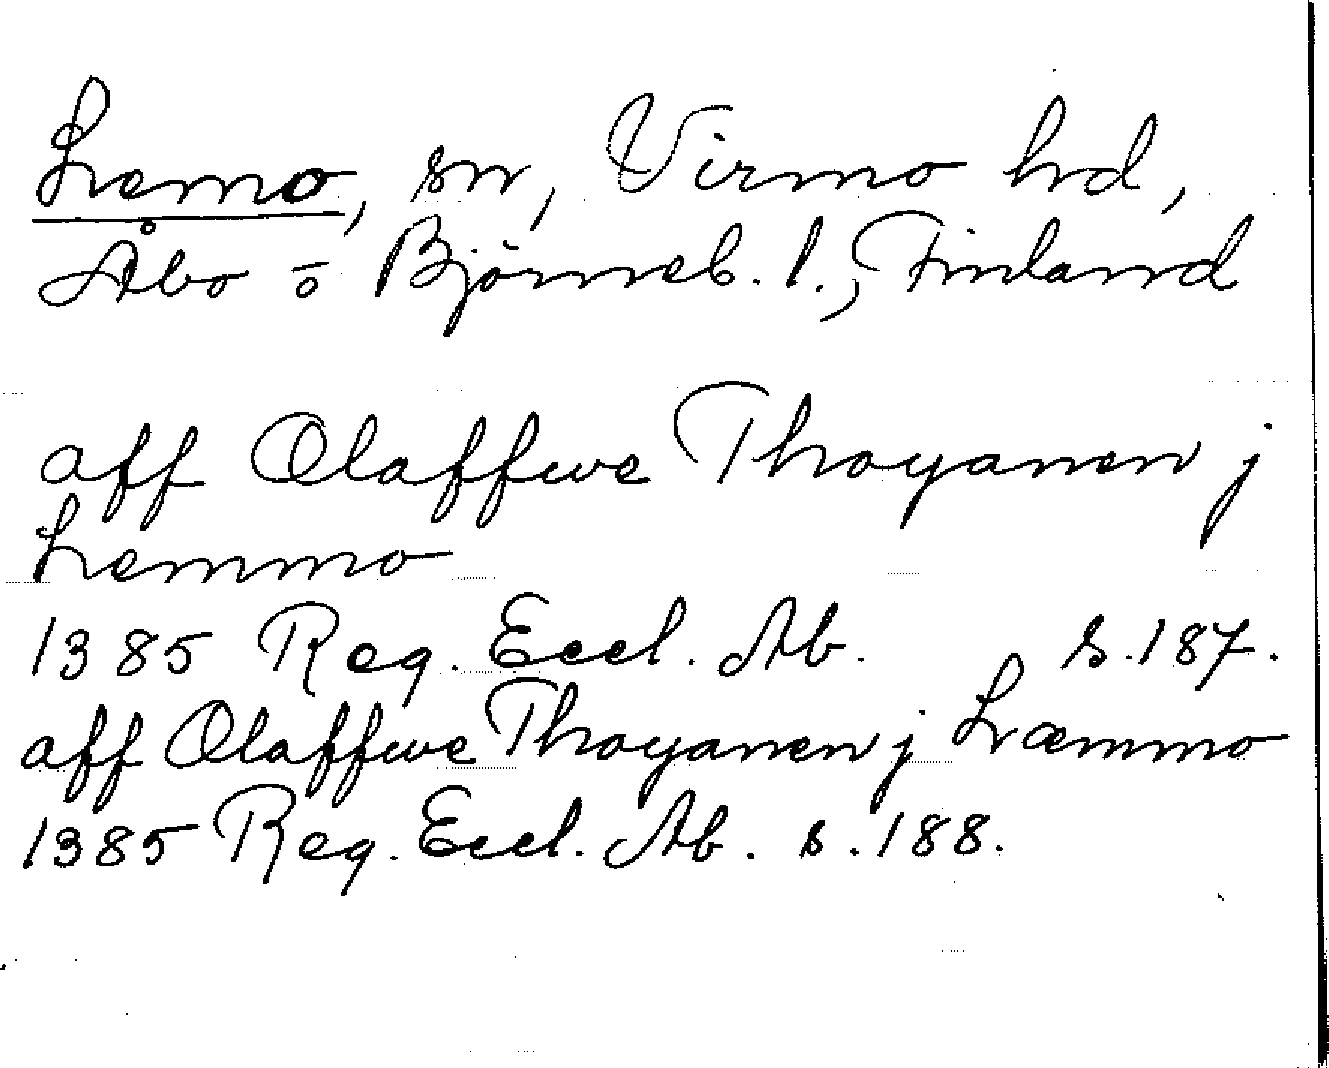 Lemo, sn, Virmo hd,
Åbo o Björneb. l., Finland
aff Olaffwe Thoyanen j
Lemmo
1385 Reg. Eccl. Ab. s. 187.
aff Olaffwe Thoyanen j Læmmo
1385 Reg. Eccl. Ab. s. 188.